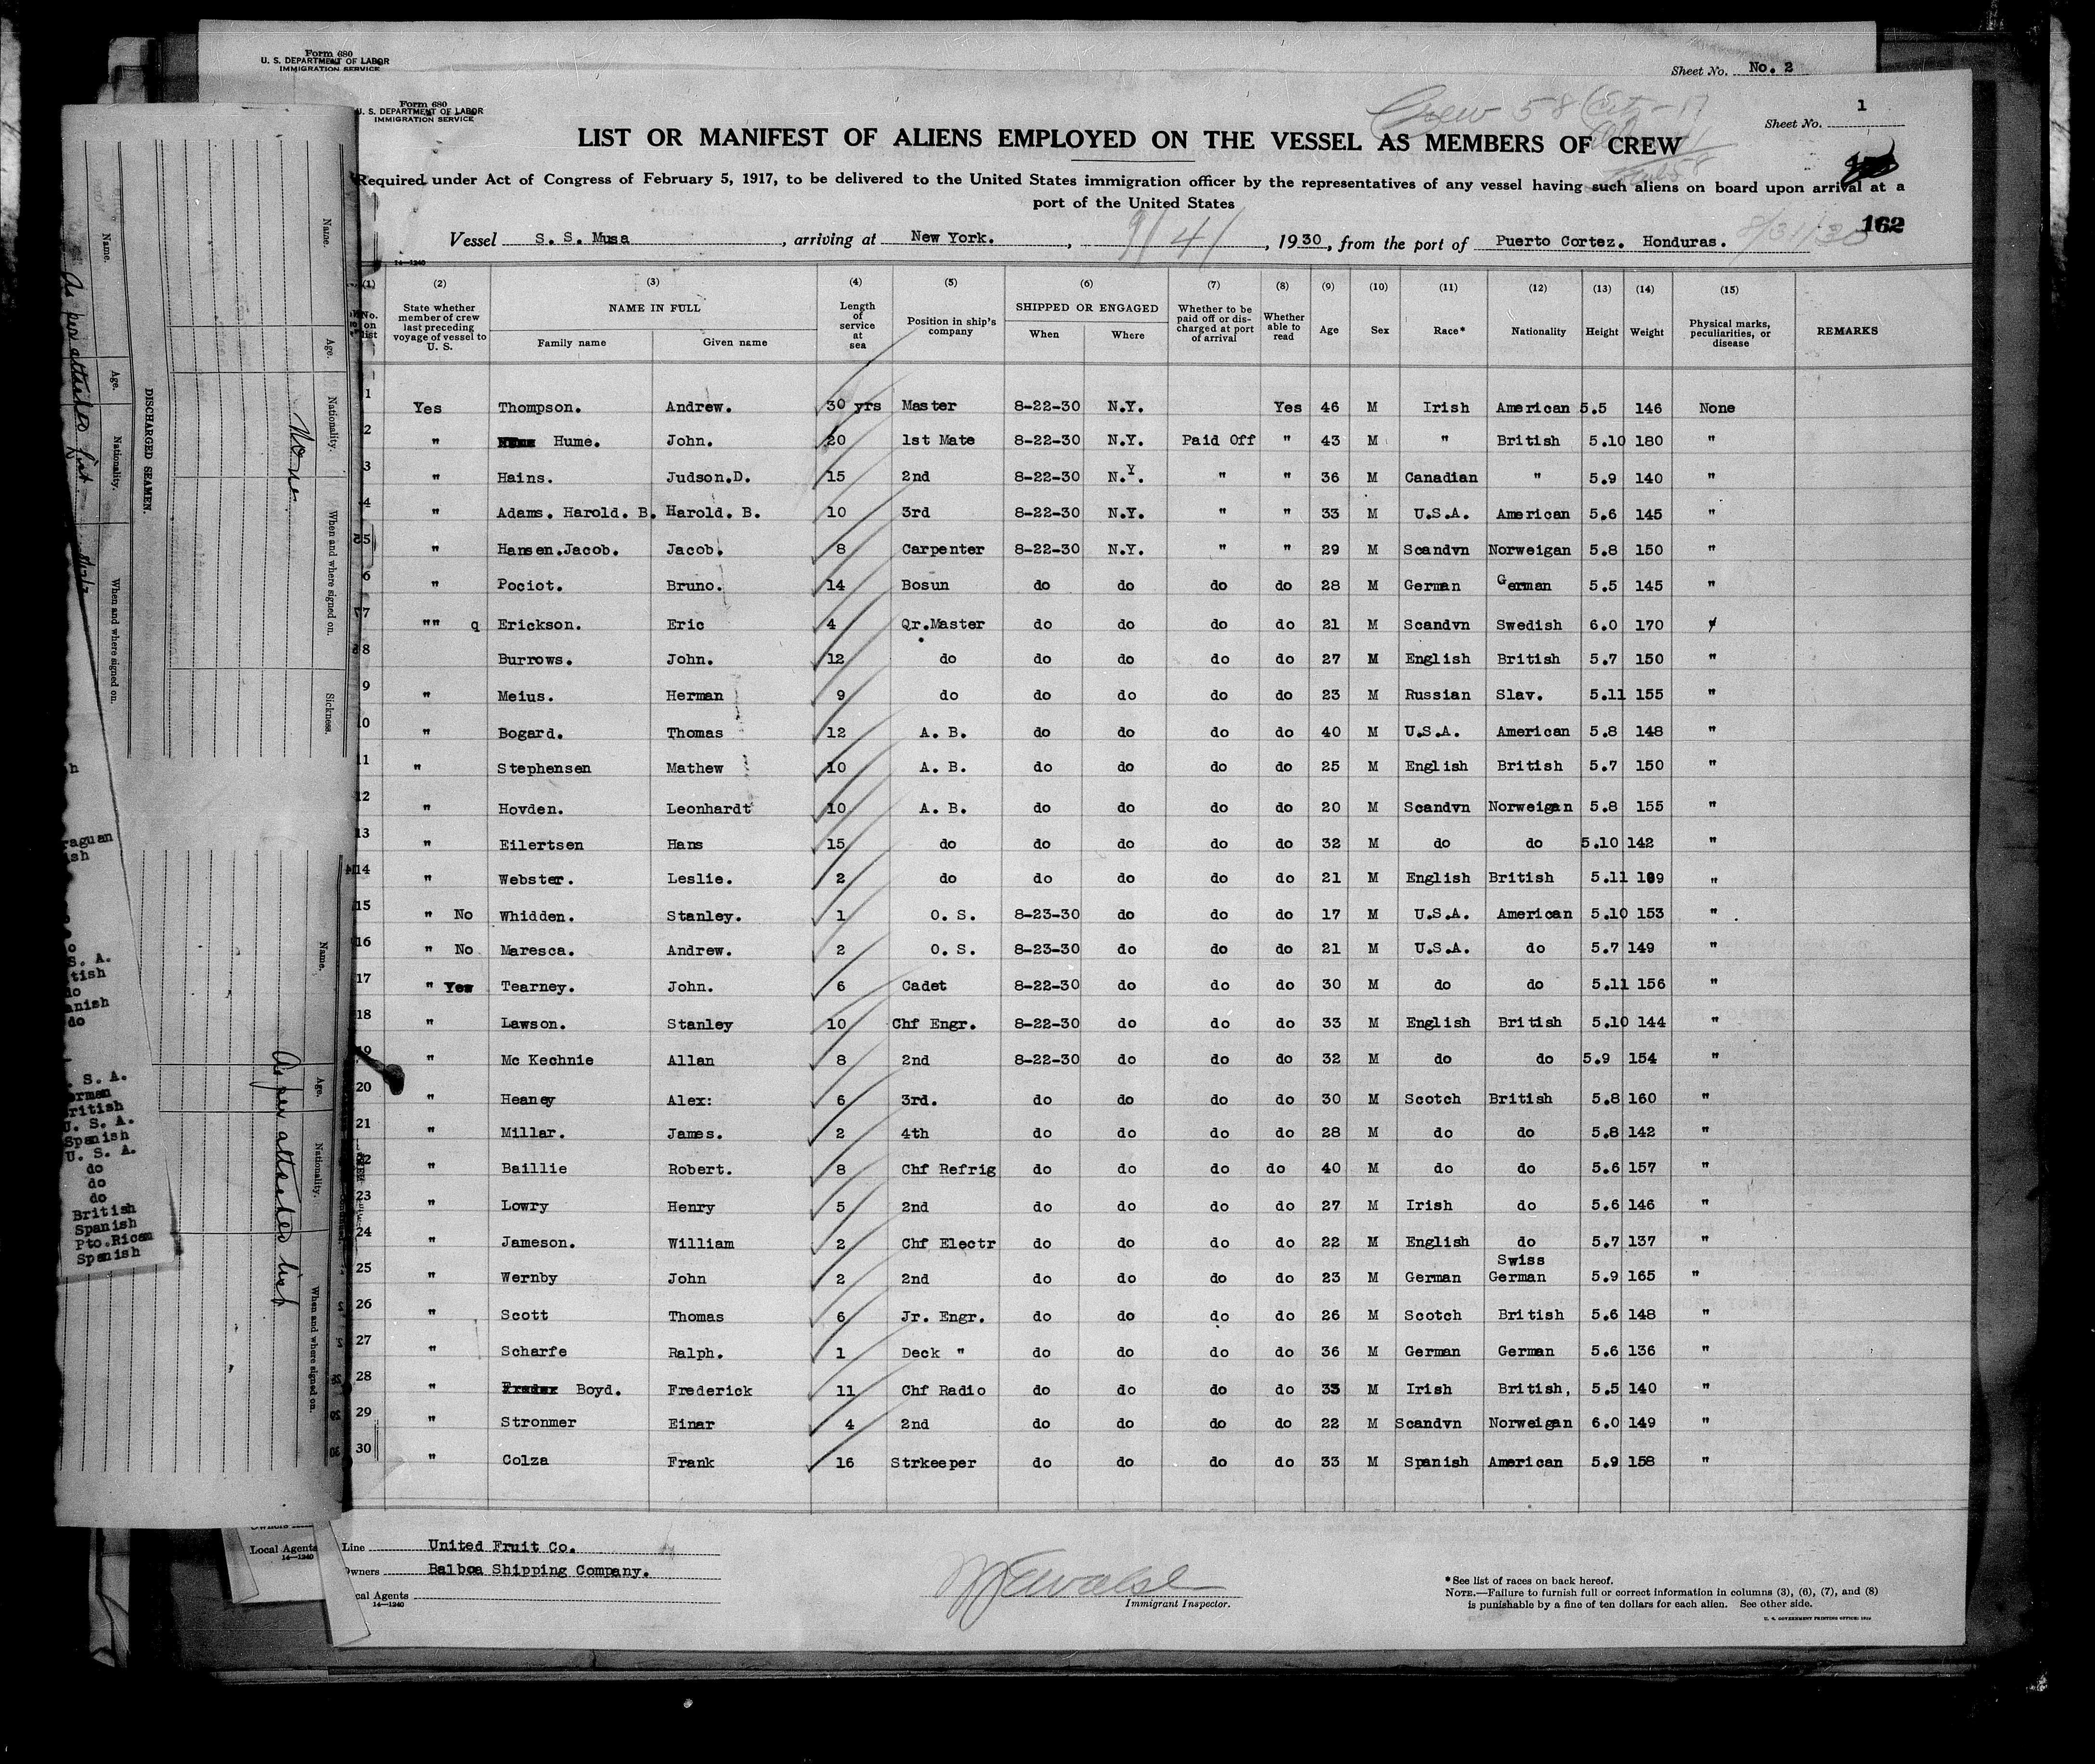 Form 680
U. S. DEPARTMENT OF LABOR
IMMIGRATION SERVICE
Sheet No. No. 2
Form 680
U. S. DEPARTMENT OF LABOR
IMMIGRATION SERVICE
Crew 58
1
Sheet No.
LIST OR MANIFEST OF ALIENS EMPLOYED ON THE VESSEL AS MEMBERS OF CREW
Required under Act of Congress of February 5, 1917, to be delivered to the United States immigration officer by the representatives of any vessel having such aliens on board upon arrival at a
port of the United States
162
Vessel S. S. Musa, arriving at New York., 9/4/, 1930, from the port of Puerto Cortez. Honduras. 8/31/30
14-1240
(1) (2) (3) (4) (5) (6) (7) (8) (9) (10) (11) (12) (13) (14) (15)
No. on list State whether member of crew last preceding voyage of vessel to U. S. NAME IN FULL Family name Given name Length of service at sea Position in ship's company SHIPPED OR ENGAGED When Where Whether to be paid off or discharged at port of arrival Whether able to read Age Sex Race* Nationality Height Weight Physical marks, peculiarities, or disease REMARKS
1 Yes Thompson. Andrew. 30 yrs Master 8-22-30 N.Y. Yes 46 M Irish American 5.5 146 None
2 " Hume. John. 20 1st Mate 8-22-30 N.Y. Paid Off " 43 M " British 5.10 180 "
3 " Hains. Judson.D. 15 2nd 8-22-30 N.Y. " " 36 M Canadian " 5.9 140 "
4 " Adams. Harold. B. Harold. B. 10 3rd 8-22-30 N.Y. " " 33 M U.S.A. American 5.6 145 "
5 " Hansen.Jacob. Jacob. 8 Carpenter 8-22-30 N.Y. " " 29 M Scandvn Norweigan 5.8 150 "
6 " Pociot. Bruno. 14 Bosun do do do do 28 M German German 5.5 145 "
7 "" q Erickson. Eric 4 Qr.Master do do do do 21 M Scandvn Swedish 6.0 170
8 Burrows. John. 12 do do do do do 27 M English British 5.7 150 "
9 " Meius. Herman 9 do do do do do 23 M Russian Slav. 5.11 155 "
10 " Bogard. Thomas 12 A. B. do do do do 40 M U.S.A. American 5.8 148 "
11 " Stephensen Mathew 10 A. B. do do do do 25 M English British 5.7 150 "
12 " Hovden. Leonhardt 10 A. B. do do do do 20 M Scandvn Norweigan 5.8 155 "
13 " Eilertsen Hans 15 do do do do do 32 M do do 5.10 142 "
14 " Webster. Leslie. 2 do do do do do 21 M English British 5.11 "
15 " No Whidden. Stanley. 1 O. S. 8-23-30 do do do 17 M U.S.A. American 5.10 153 "
16 " No Maresca. Andrew. 2 O. S. 8-23-30 do do do 21 M U.S.A. do 5.7 149 "
17 " Yes Tearney. John. 6 Cadet 8-22-30 do do do 30 M do do 5.11 156 "
18 " Lawson. Stanley 10 Chf Engr. 8-22-30 do do do 33 M English British 5.10 144 "
19 " Mc Kechnie Allan 8 2nd 8-22-30 do do do 32 M do do 5.9 154 "
20 " Heaney Alex: 6 3rd. do do do do 30 M Scotch British 5.8 160 "
21 " Millar. James. 2 4th do do do do 28 M do do 5.8 142 "
22 " Baillie Robert. 8 Chf Refrig do do do do 40 M do do 5.6 157 "
23 " Lowry Henry 5 2nd do do do do 27 M Irish do 5.6 146 "
24 " Jameson. William 2 Chf Electr do do do do 22 M English do 5.7 137 "
25 " Wernby John 2 2nd do do do do 23 M German Swiss German 5.9 165 "
26 " Scott Thomas 6 Jr. Engr. do do do do 26 M Scotch British 5.6 148 "
27 " Scharfe Ralph. 1 Deck " do do do do 36 M German German 5.6 136 "
28 " Boyd. Frederick 11 Chf Radio do do do do 33 M Irish British, 5.5 140 "
29 " Stronmer Einar 4 2nd do do do do 22 M Scandvn Norweigan 6.0 149 "
30 " Colza Frank 16 Strkeeper do do do do 33 M Spanish American 5.9 158 "
Line United Fruit Co.
Owners Balboa Shipping Company.
Local Agents
14-1240
Immigrant Inspector.
*See list of races on back hereof.
NOTE.—Failure to furnish full or correct information in columns (3), (6), (7), and (8)
is punishable by a fine of ten dollars for each alien. See other side.
U. S. GOVERNMENT PRINTING OFFICE: 1929
DISCHARGED SEAMEN.
Name. Age. Nationality. When and where signed on. Sickness.
None
Name. Age. Nationality. When and where signed on.
As per attached list
Name. Age. Nationality. When and where signed on.
As per attached list
S. A.
tish
do
anish
do
. S. A.
erman
ritish
U. S. A.
Spanish
U. S. A.
do
do
do
British
Spanish
Pto.Rican
Spanish
Local Agents
14-1240